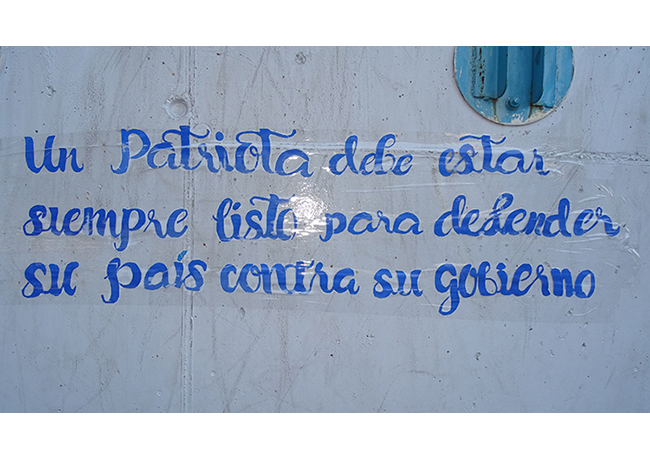 Un Patriota debe estar
siempre listo para defender
su país contra su gobierno